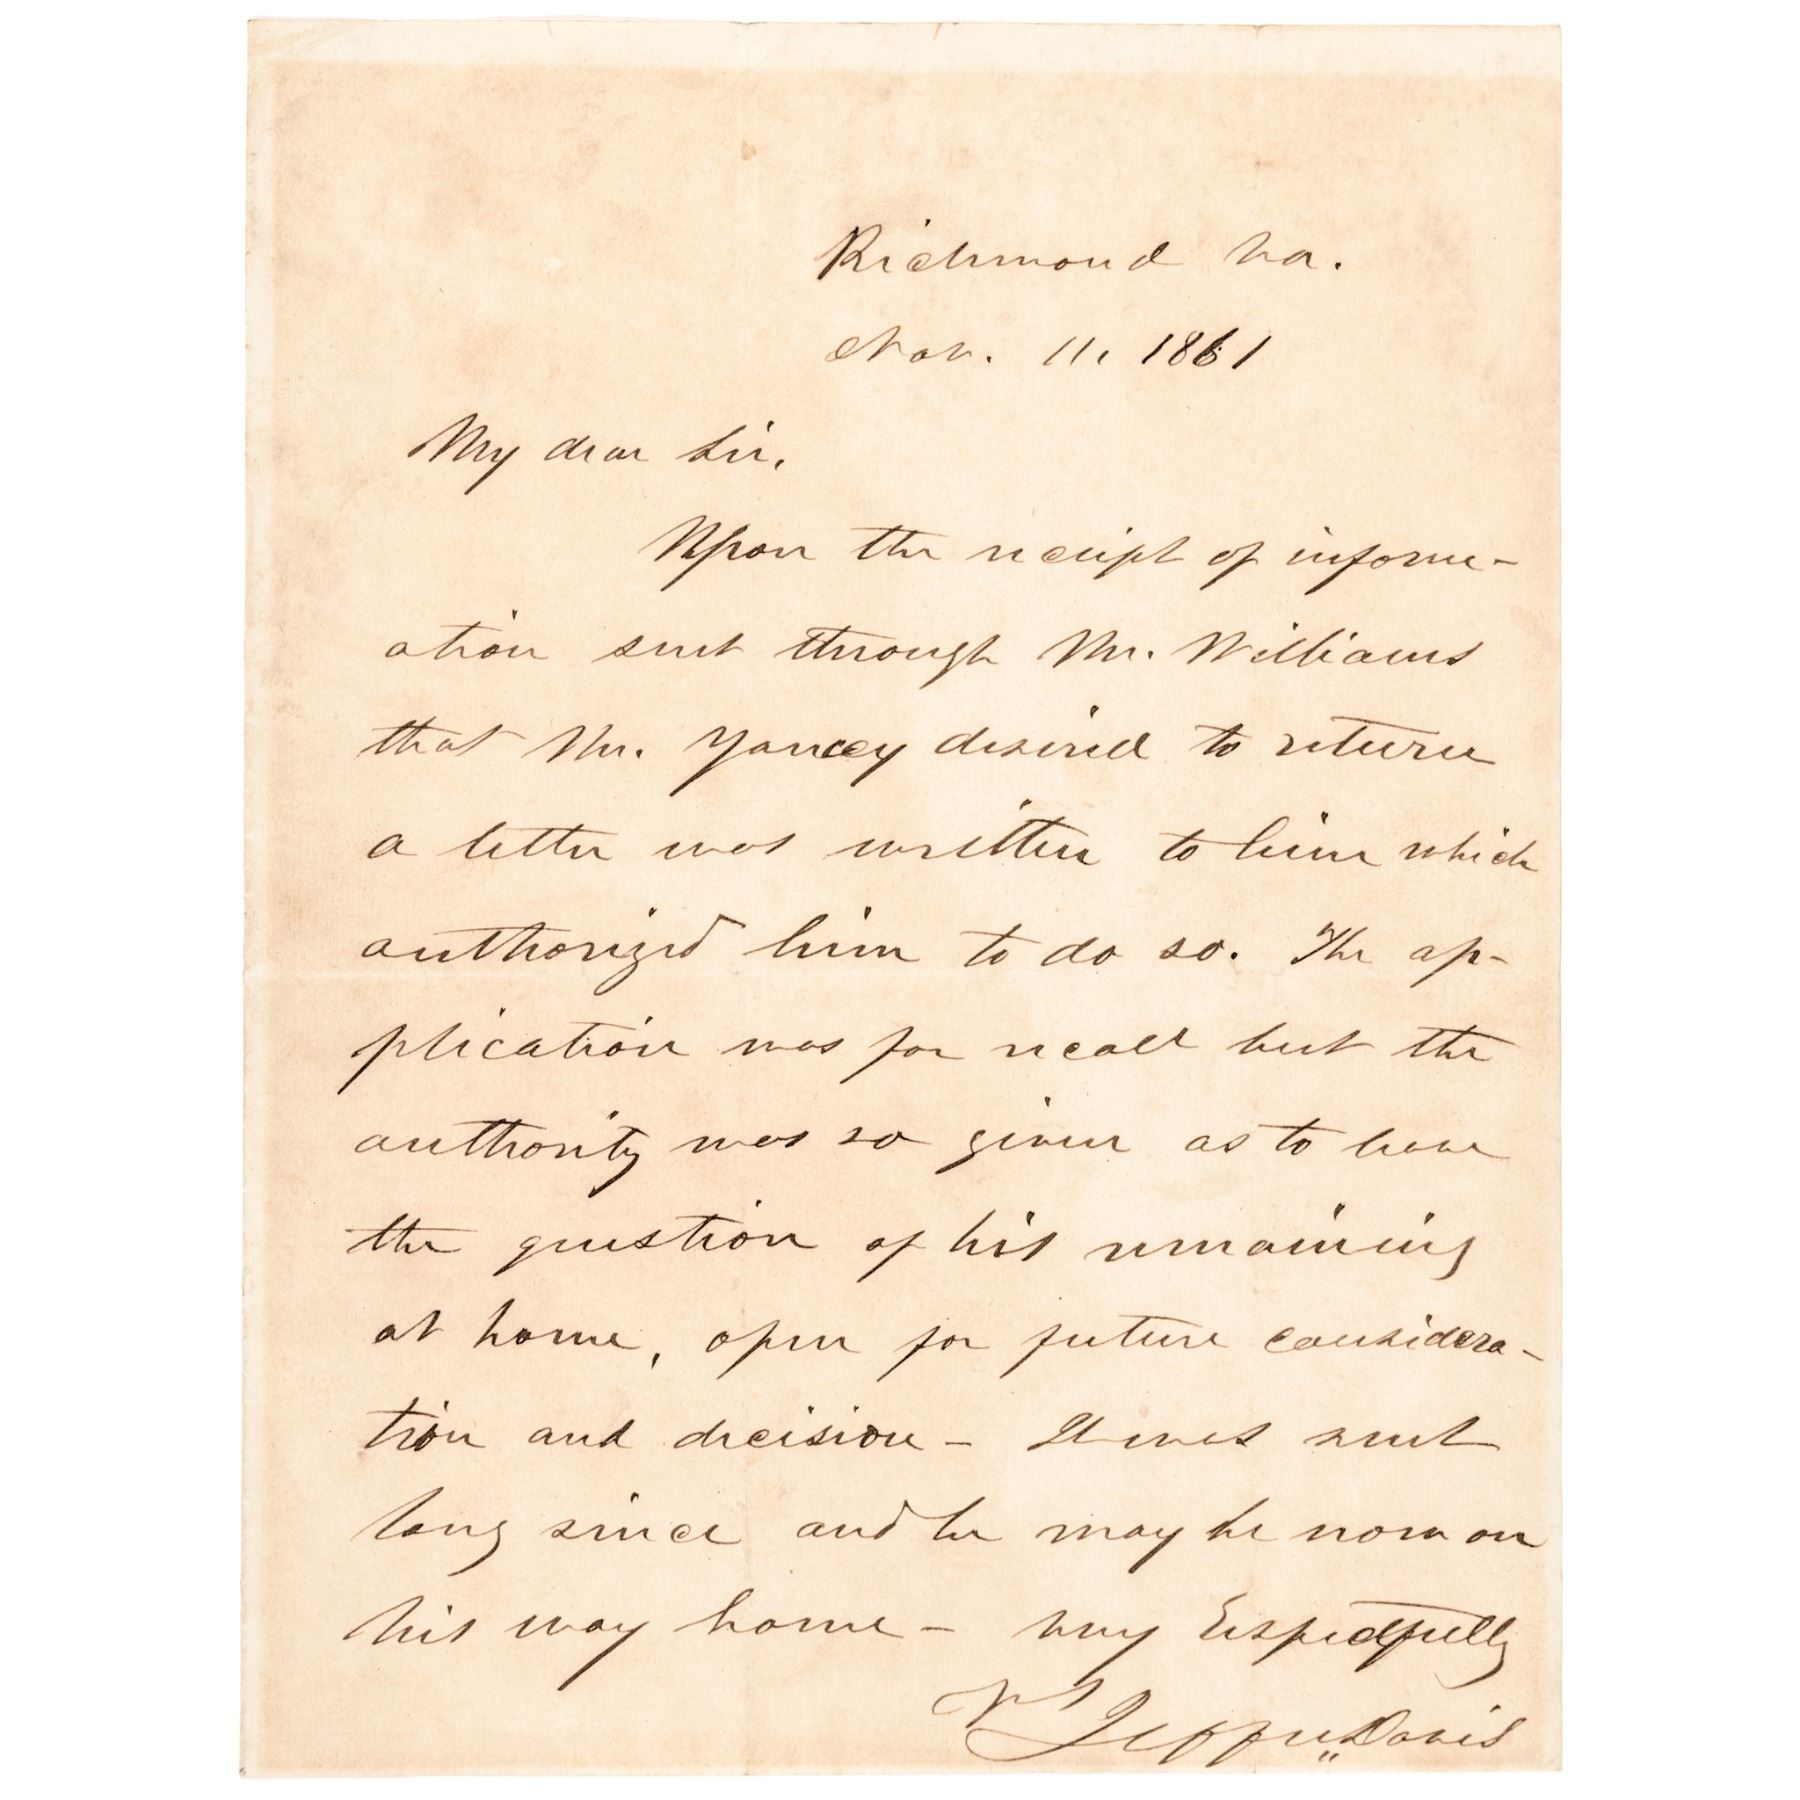 Richmond Va.
Nov. 11, 1861
My dear Sir,
Upon the receipt of inform-
ation sent through Mr. Williams
that Mr. Yancey desired to return
a letter was written to him which
authorized him to do so. The ap-
plication was for recall but the
authority was so given as to leave
the question of his remaining
at home, open for future considera-
tion and decision - It was sent
long since and he may be now on
his way home - Very Respectfully
Yrs Jeffn Davis